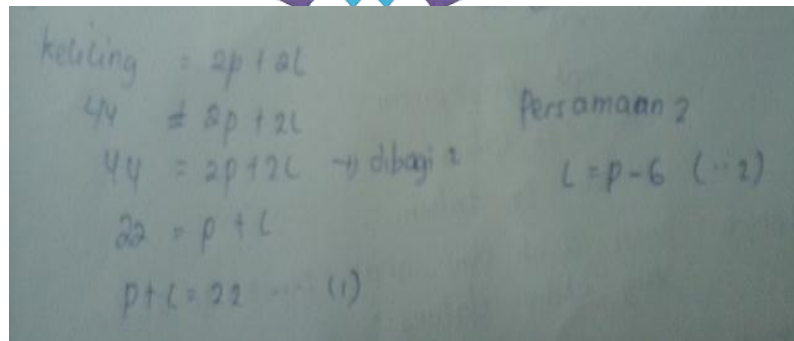 keliling = 2p + 2L
44 = 2p + 2L
44 = 2p + 2L → dibagi 2
22 = p + L
p + L = 22 .... (1)
Persamaan 2
L = p - 6 (...2)